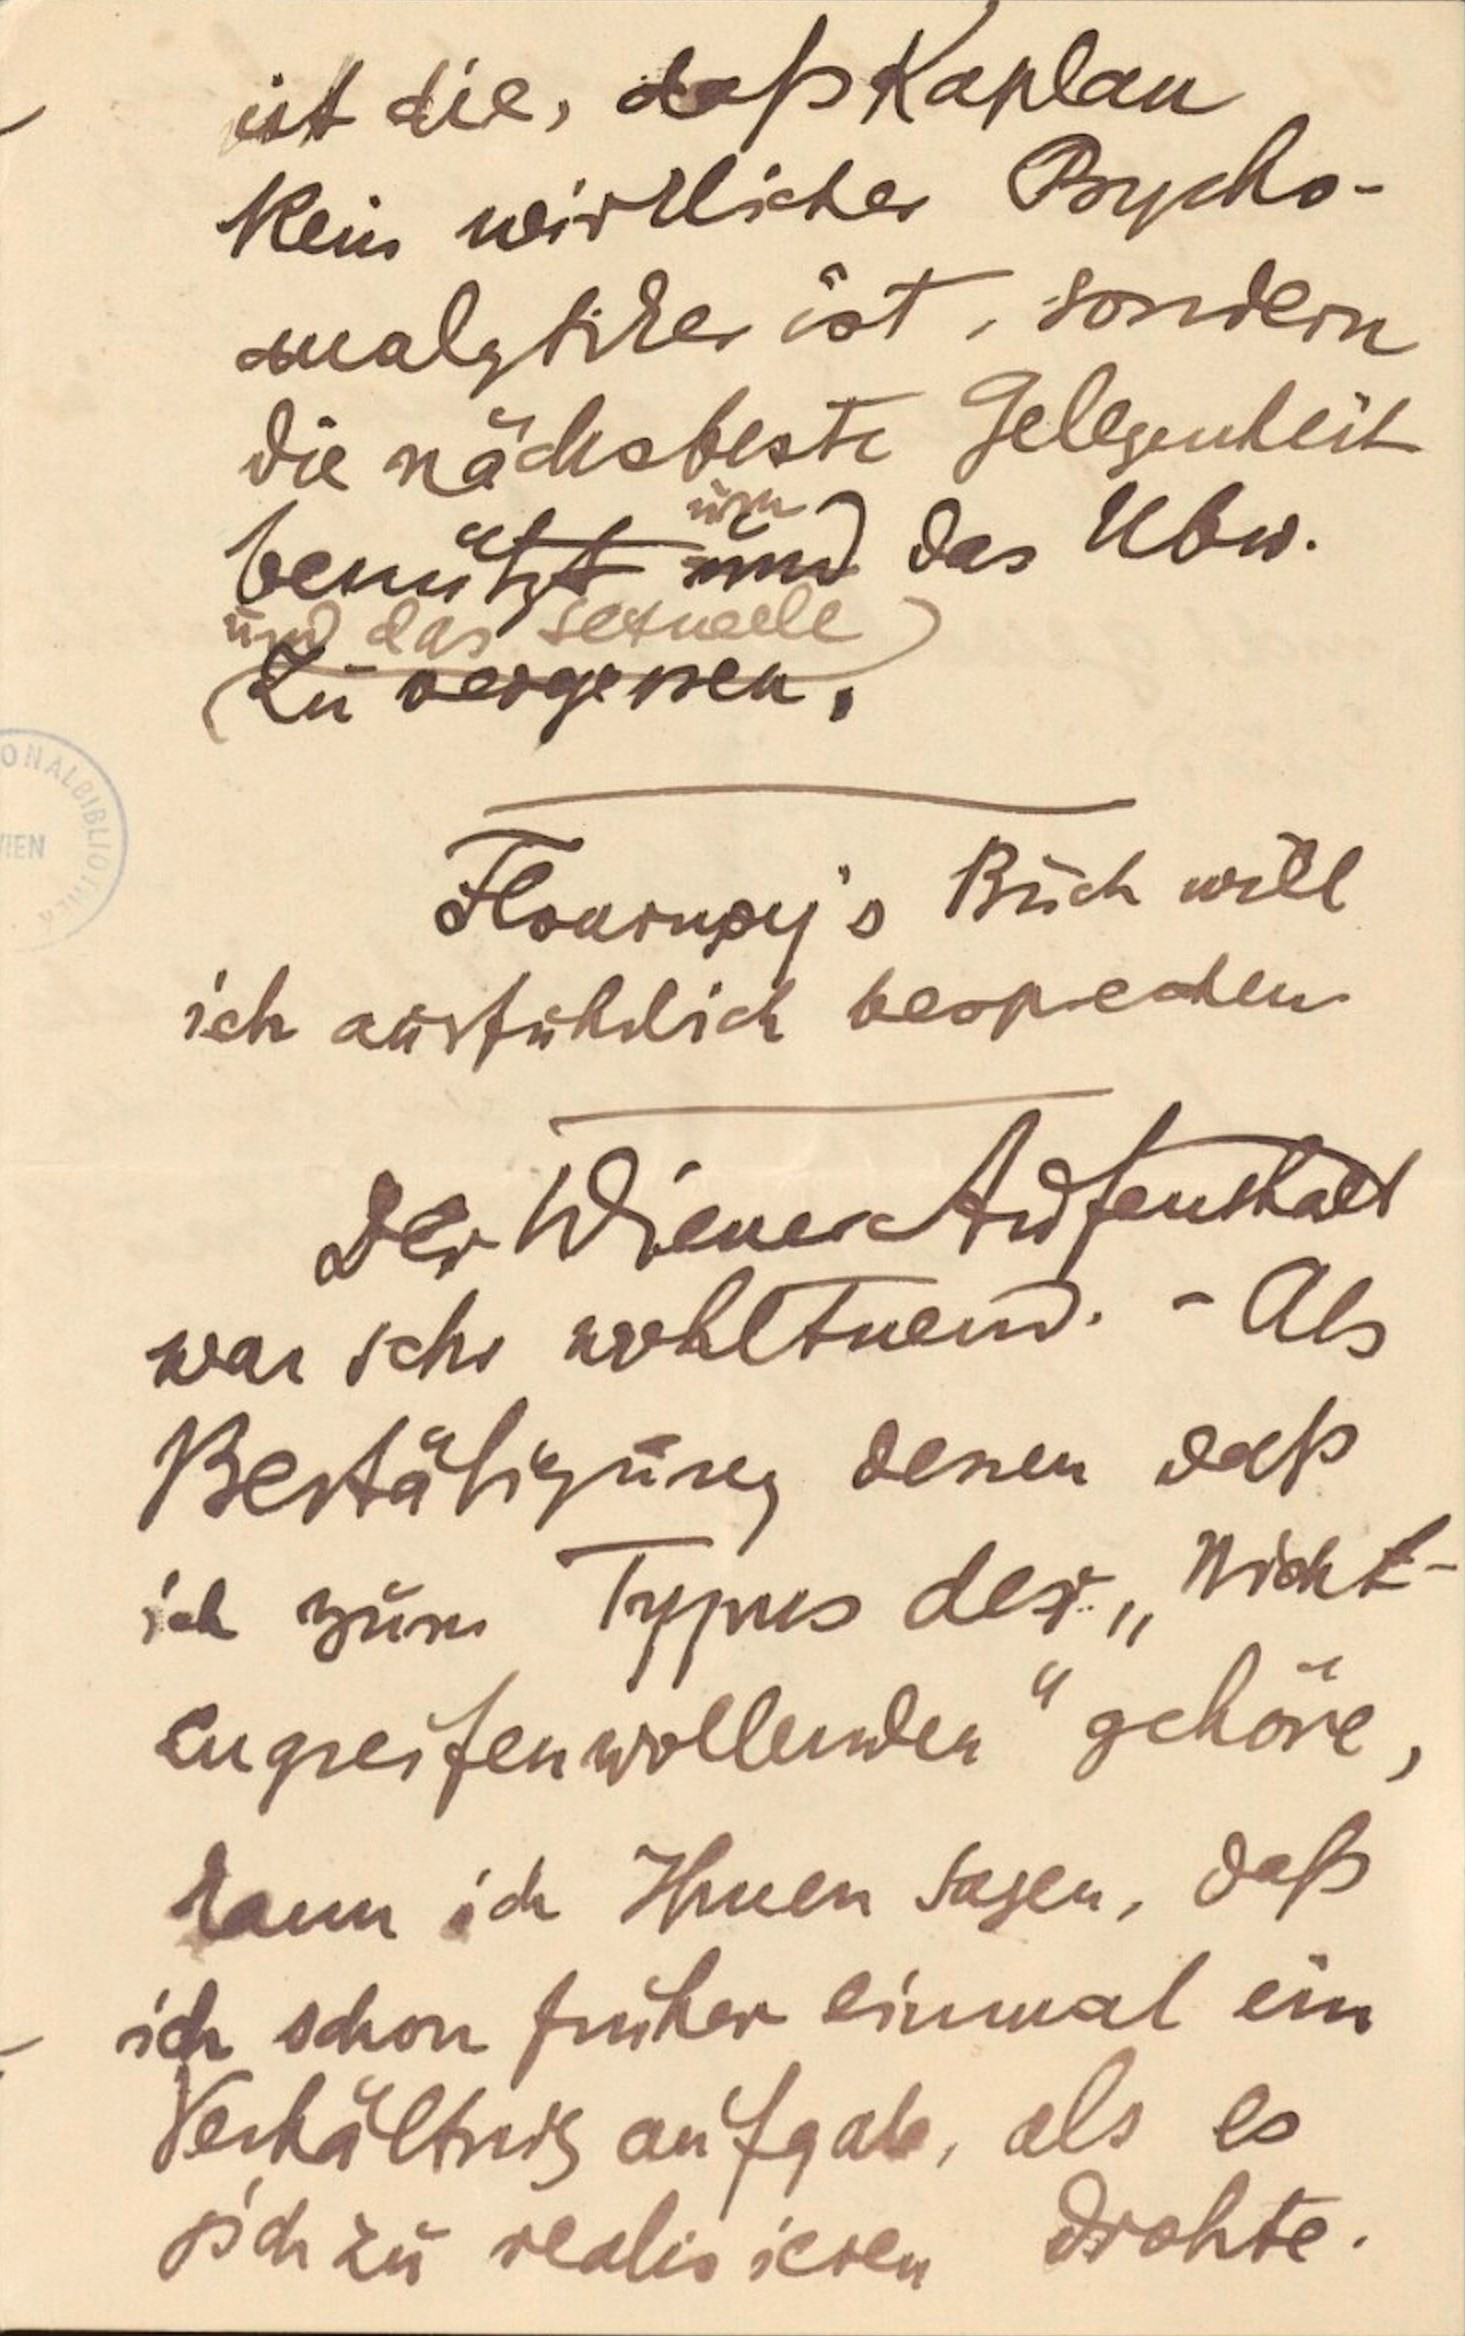 ist die, daß Kaplan
kein wirklicher Psycho-
analytiker ist, sondern
die nächstbeste Gelegenheit
um
benützt und das Ubw.
und das sexuelle
zu vergessen.
Flournoy's Buch will
ich ausführlich besprechen
Der Wiener Aufenthalt
war sehr wohltuend. - Als
Bestätigung dessen daß
ich zum Typus der „Nicht-
zugreifenwollenden" gehöre,
kann ich Ihnen sagen, daß
ich schon früher einmal ein
Verhältniß aufgab, als es
sich zu realisieren drohte.
ONALBIBLIOTHEK
WIEN